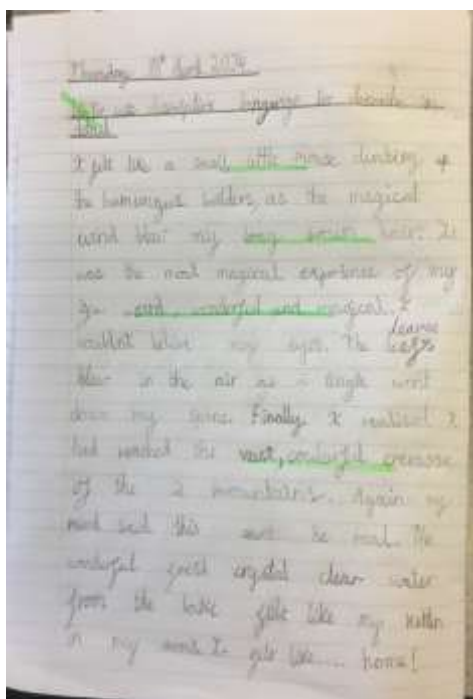 Thursday 11th April 2024
use descriptive language to describe
I felt like a small little mouse climbing up
the humungus bolders, as the magical
wind blew my long brown hair. It
was the most magical experience of my
wonderful and magical. I
couldnt belive my eyes. The leaves
blew in the air as a tingle went
down my spine. Finally, I realised I
had reached the vast, wonderful crevasse
of the 2 mountains. Again my
mind said this cant be real. The
crystal clear water
from the lake felt like my
in my mind I felt like.... home!